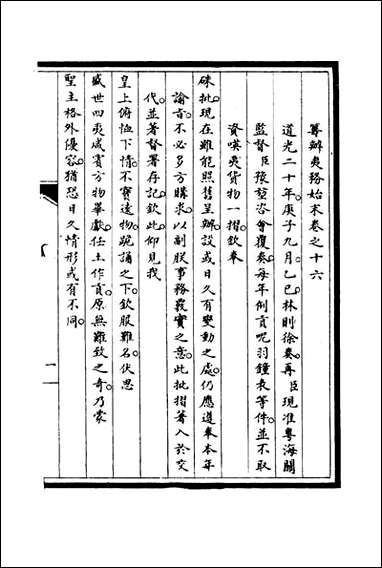 籌辦夷務始末卷之十六
道光二十年庚子九月乙巳林則徐奏再臣現准粵海關
監督臣豫堃咨會覆奏每年例貢呢羽鐘表等件並不取
資嘆夷貨物一摺欽奉
硃批現在雖能照舊呈辦設或日久有變動之處仍應遵奉本年
諭旨不必多方購求以副朕事務覈實之意此批摺著入於交
代並著督署存記欽此仰見我
皇上俯恤下情不寶遠物跪誦之下欽服難名伏思
盛世四夷咸賓方物畢獻任土作貢原無難致之奇乃蒙
聖主格外優容猶恐日久情形或有不同
一